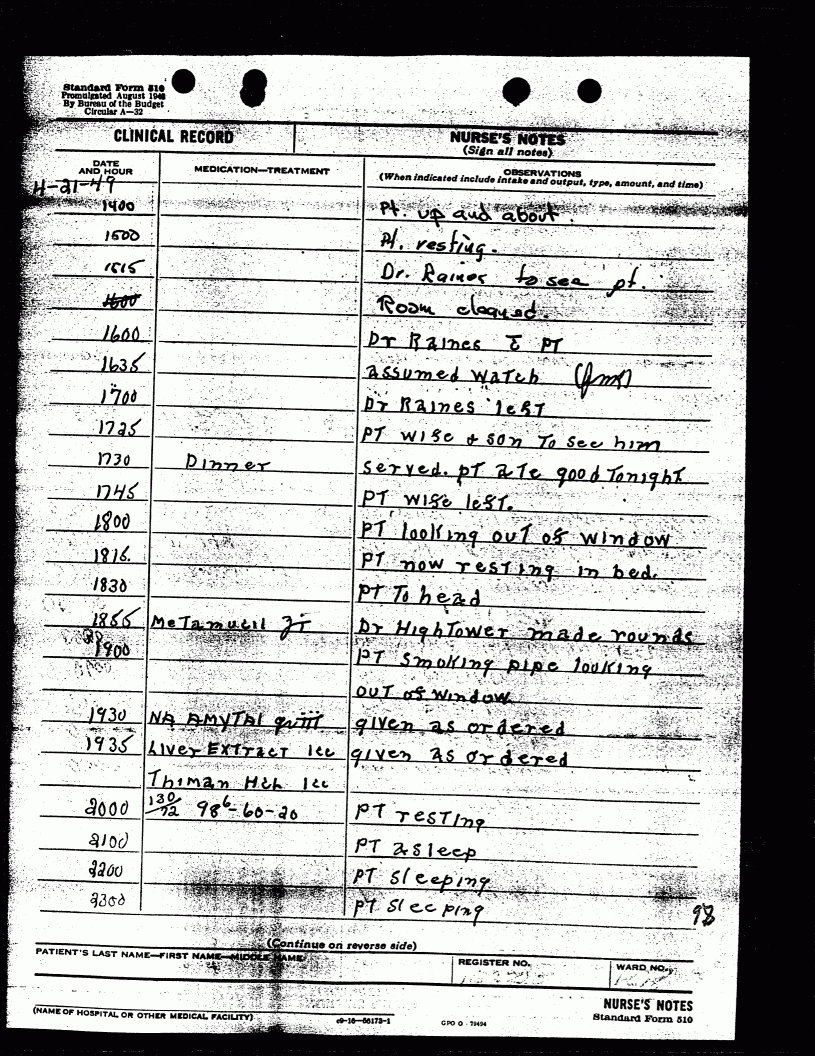 Standard Form 510
Promulgated August 1948
By Bureau of the Budget
Circular A—32
CLINICAL RECORD NURSE'S NOTES
(Sign all notes)
DATE AND HOUR MEDICATION—TREATMENT OBSERVATIONS
(When indicated include intake and output, type, amount, and time)
4-21-49
1400 Pt. up and about.
1500 Pt. resting.
1515 Dr. Raines to see pt.
1600 Room cleaned.
1600 Dr Raines c̄ PT
1635 assumed watch
1700 Dr Raines left
1725 PT wife & son To see him
1730 Dinner served. pT aTe good Tonight
1745 PT wife lefT.
1800 PT looking ouT of window
1815. PT now resting in bed.
1830 PT To head
1855 MeTamucil ʒiT Dr HighTower made rounds
1900 PT smoking pipe looking
ouT of window
1930 NA AMYTAl given as ordered
1935 Liver EXTracT 1cc given as ordered
Thiman Hcl 1cc
2000 130/72 98⁶-60-20 PT resTing
2100 PT asleep
2200 PT sleeping
2300 PT sleeping
98
(Continue on reverse side)
PATIENT'S LAST NAME—FIRST NAME—MIDDLE NAME REGISTER NO. WARD NO.
NURSE'S NOTES
Standard Form 510
(NAME OF HOSPITAL OR OTHER MEDICAL FACILITY) c9-16—56173-1 GPO O - 79494